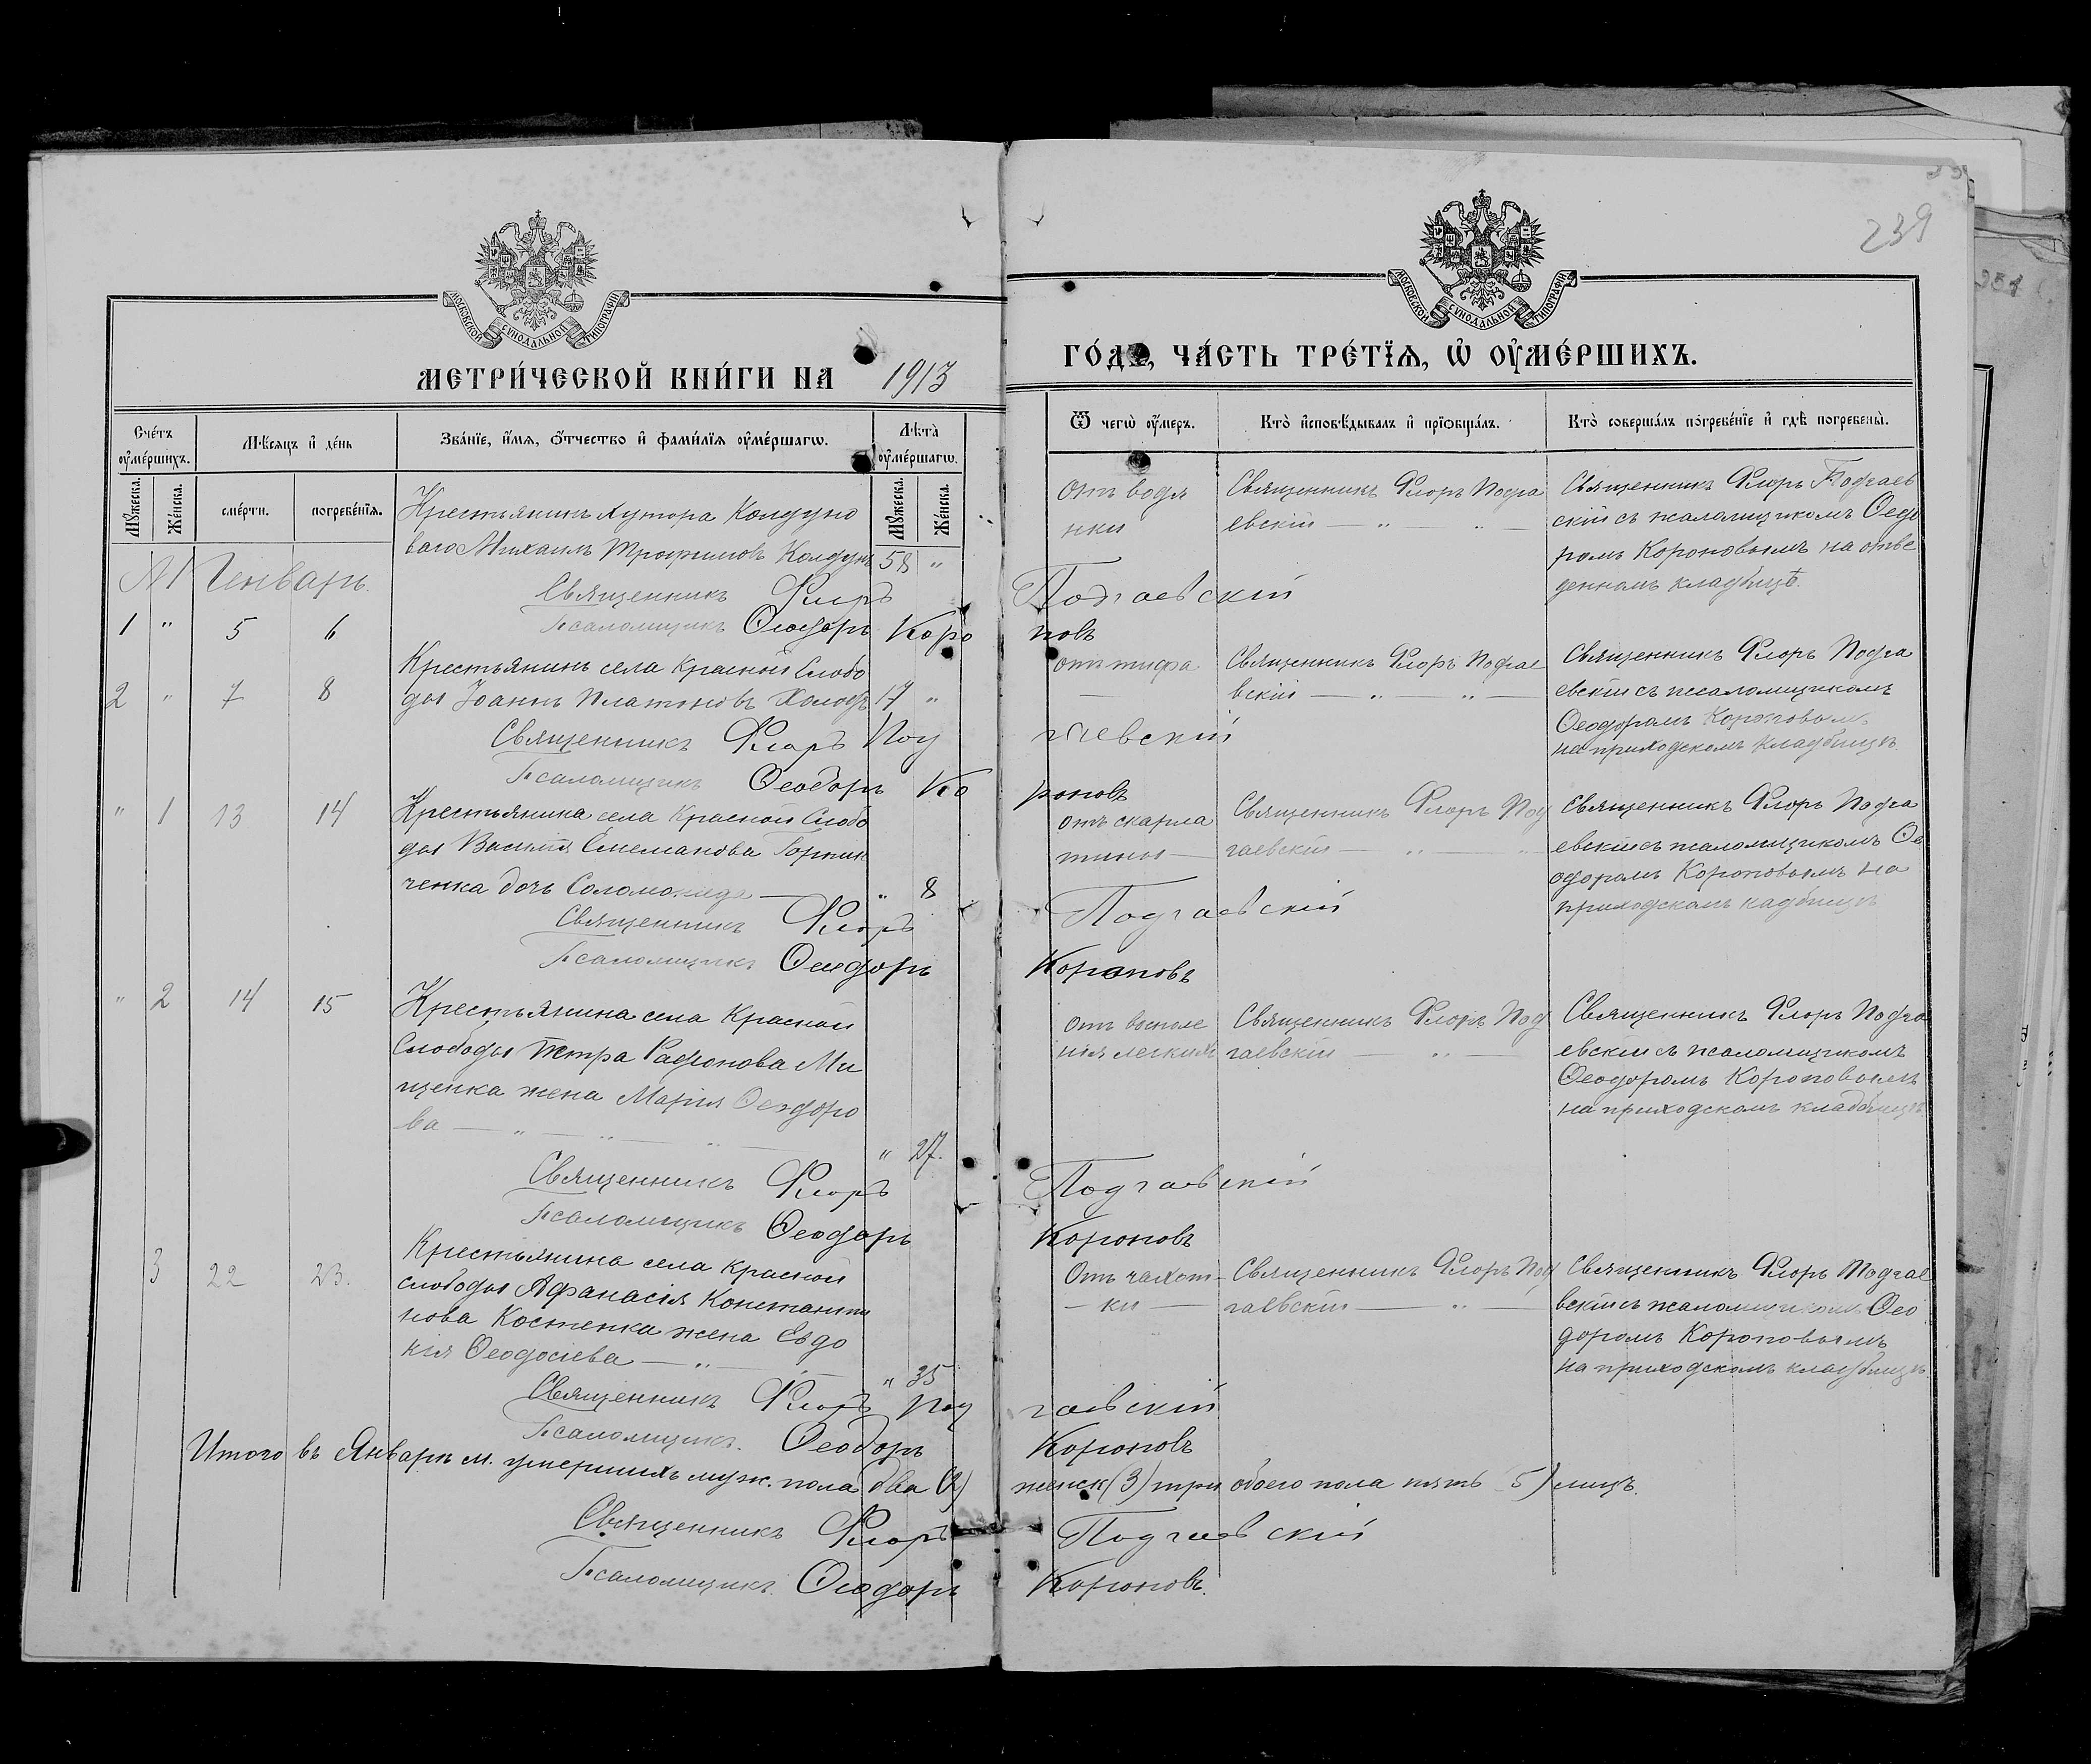 239
МОСКОВСКОЙ СѴНОДАЛЬНОЙ ТИПОГРАФІИ
МОСКОВСКОЙ СѴНОДАЛЬНОЙ ТИПОГРАФІИ
МЕТРИ́ЧЕСКОЙ КНИ́ГИ НА 1913
ГО́ДЪ, ЧА́СТЬ ТРЕ́ТЇѦ, Ѡ҆ ОУ҆МЕ́РШИХЪ.
Сче́тъ оу҆ме́ршихъ.
Мѣ́сѧцъ и҆ де́нь
Зва́нїе, и҆́мѧ, ѻ҆́тчество и҆ фами́лїѧ оу҆ме́ршагѡ.
Лѣ́та оу҆ме́ршагѡ.
Ѿ чегѡ̀ оу҆́меръ.
Кто̀ и҆сповѣ́дывалъ и҆ прїѡбща́лъ.
Кто̀ соверша́лъ погребе́нїе и҆ гдѣ̀ погребены̀.
Мꙋ́жеска.
Же́нска.
сме́рти.
погребе́нїѧ.
Мꙋ́жеска.
Же́нска.
Крестьянинъ хутора Колдуно
ваго Михаилъ Трофимовъ Колдунъ 58 "
отъ водя
нки
Священникъ Флоръ Подга
евскій — " — " —
Священникъ Флоръ Подгаев
скій съ псаломщикомъ Ѳеодо
ромъ Короповымъ на отве
денномъ кладбищѣ.
М Генварь.
Священникъ Флоръ Подгаевскій
1 " 5 6
Псаломщикъ Ѳеодоръ Короповъ
Крестьянинъ села Красной Слобо
2 " 7 8
ды Іоаннъ Платоновъ Холодъ 17 "
отъ тифа
—
Священникъ Флоръ Подгае
вскій — " — " —
Священникъ Флоръ Подга
евскій съ псаломщикомъ
Ѳеодоромъ Короповымъ
на приходскомъ кладбищѣ.
Священникъ Флоръ Подгаевскій
Псаломщикъ Ѳеодоръ Короповъ
" 1 13 14
Крестьянина села Красной Слобо
ды Василія Горник
ченка дочь Соломонида — " 8
отъ скарла
тины —
Священникъ Флоръ Под
гаевскій — " — "
Священникъ Флоръ Подга
евскій съ псаломщикомъ Ѳе
одоромъ Короповымъ на
приходскомъ кадбищѣ
Священникъ Флоръ Подгаевскій
Псаломщикъ Ѳеодоръ Короповъ
" 2 14 15
Крестьянина села Красной
Слободы Петра Радіонова Ми
щенка жена Марія Ѳеодоро
ва — " — " — " — " 27.
отъ воспале
нія легкихъ
Священникъ Флоръ Под
гаевскій — " —
Священникъ Флоръ Подга
евскій съ псаломщикомъ
Ѳеодоромъ Короповымъ
на приходскомъ кладбищѣ
Священникъ Флоръ Подгаевскій
Псаломщикъ Ѳеодоръ Короповъ
3 22 23.
Крестьянина села Красной
слободы Аѳанасія Константи
нова Костенка жена Евдо
кія Ѳеодосіева — " — " 35
Отъ чахот-
— ки —
Священникъ Флоръ Под
гаевскій — " —
Священникъ Флоръ Подгае
вскій съ псаломщикомъ Ѳео
доромъ Короповымъ
на приходскомъ кладбищѣ.
Священникъ Флоръ Подгаевскій
Псаломщикъ. Ѳеодоръ Короповъ
Итого въ Январѣ м. умершихъ муж. пола два (2) женск (3) три обоего пола пять (5) лицъ.
Священникъ Флоръ Подгаевскій
Псаломщикъ. Ѳеодоръ Короповъ.